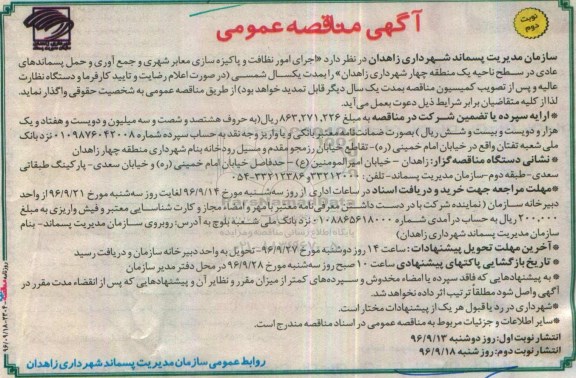 آگهی مناقصه عمومی
نوبت دوم
سازمان مدیریت پسماند شهرداری زاهدان در نظر دارد «اجرای امور نظافت و پاکیزه سازی معابر شهری و جمع آوری و حمل پسماندهای
عادی در سطح ناحیه یک منطقه چهار شهرداری زاهدان» را بمدت یکسال شمسی (در صورت اعلام رضایت و تایید کارفرما و دستگاه نظارت
عالیه و پس از تصویب کمیسیون مناقصه بمدت یک سال دیگر قابل تمدید خواهد بود) از طریق مناقصه عمومی به شخصیت حقوقی واگذار نماید.
لذا از کلیه متقاضیان برابر شرایط ذیل دعوت بعمل می‌آید.
ارایه سپرده یا تضمین شرکت در مناقصه به مبلغ ۸۶۳,۲۷۱,۲۲۶ ریال(به حروف هشتصد و شصت و سه میلیون و دویست و هفتاد و یک
هزار و دویست و بیست و شش ریال) بصورت ضمانت نامه معتبر بانکی و یا واریز وجه نقد به حساب سپرده شماره ۰۱۰۹۸۷۶۰۴۲۰۰۸ نزد بانک
ملی شعبه تفتان واقع در خیابان امام خمینی (ره)- تقاطع خیابان رزمجو مقدم و مسیل رودخانه بنام شهرداری منطقه چهار زاهدان
نشانی دستگاه مناقصه گزار: زاهدان - خیابان امیرالمومنین (ع) - حدفاصل خیابان امام خمینی (ره) و خیابان سعدی- پارکینگ طبقاتی
سعدی-طبقه دوم-سازمان مدیریت پسماند- تلفن: ۳۳۲۱۲۰۰۰ و ۳۳۲۱۲۳۸۶-۰۵۴
مهلت مراجعه جهت خرید و دریافت اسناد در ساعات اداری از روز سه‌شنبه مورخ ۹۶/۹/۱۴ لغایت روز سه‌شنبه مورخ ۹۶/۹/۲۱ از واحد
دبیرخانه سازمان (نماینده شرکت با در دست داشتن معرفی نامه معتبر با مهر و امضاء مجاز و کارت شناسایی معتبر و فیش واریزی به مبلغ
۲۰۰,۰۰۰ ریال به حساب درآمدی شماره ۰۱۰۸۸۶۵۶۱۸۰۰۰ نزد بانک ملی شعبه بلوچ به آدرس: روبروی سازمان مدیریت پسماند- بنام
سازمان مدیریت پسماند شهرداری زاهدان)
آخرین مهلت تحویل پیشنهادات: ساعت ۱۴ روز دوشنبه مورخ ۹۶/۹/۲۷- تحویل به واحد دبیرخانه سازمان و دریافت رسید
تاریخ بازگشایی پاکتهای پیشنهادی ساعت ۱۰ صبح روز سه‌شنبه مورخ ۹۶/۹/۲۸ در محل دفتر مدیر سازمان
به پیشنهادهایی که فاقد سپرده یا امضاء مخدوش و سپرده‌های کمتر از میزان مقرر و نظایر آن و پیشنهادهایی که پس از انقضاء مدت مقرر در
آگهی واصل شود مطلقا ترتیب اثر داده نخواهد شد.
شهرداری در رد یا قبول هر یک از پیشنهادات مختار است.
سایر اطلاعات و جزئیات مربوط به مناقصه عمومی در اسناد مناقصه مندرج است.
انتشار نوبت اول: روز دوشنبه ۹۶/۹/۱۳
انتشار نوبت دوم: روز شنبه ۹۶/۹/۱۸
روابط عمومی سازمان مدیریت پسماند شهرداری زاهدان